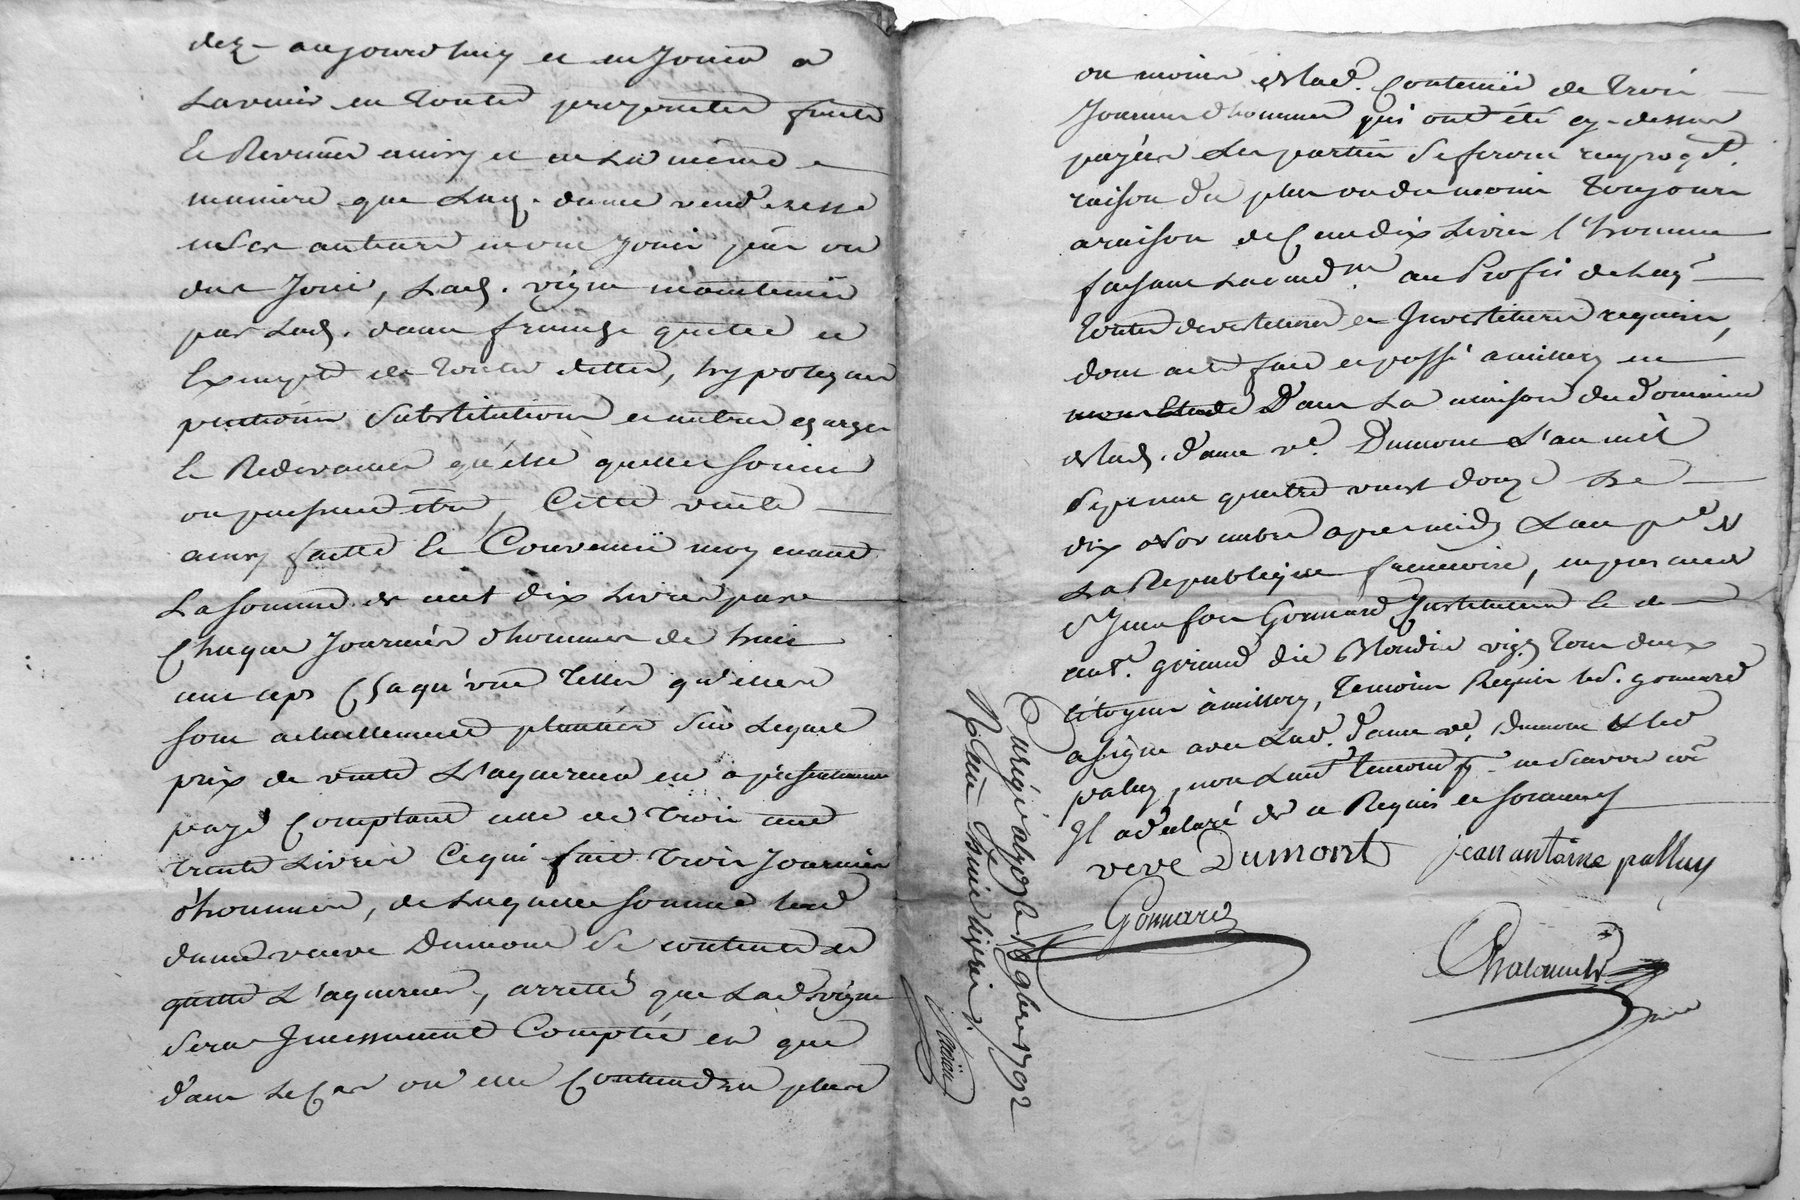 dez aujourdhuy et en Jouir a
Lavenir en toutte proprieté fruits
& Revenus ainsy et en La même
maniere que Lad. dame venderesse
en ont Jouir peu ou
du Jouir, Lad. vigne maintenue
par Lad. dame franche quitte et
Exempte de toutes dettes, hypoteques
pentions substitutions et autres charges
& Redevances qu'elle quelles soient
ou puissent être, Cette vente
ainsy faitte & Convenuë moyenant
La somme de cent dix Livres pour
Chaque Journée d'hommes de huit
cent ceps Chaqu'une telles qu'elles
sont actuellement plantées sur Lequel
prix de vente L'aquereur en a presentement
payé Comptant celle de trois cent
trente Livres Ce qui fait trois Journées
d'hommes, de Laquelle somme lad
dame veuve Dumont se contente et
quitte L'aquereur, arretté que Lad vigne
sera Incessament Comptée et que
dans Le Cas ou elle Contiendra plus
ou moins Contenuë de trois
Journées d'hommes qui ont été cy-dessus
payées Les parties se feront
raison du plus ou du moins toujours
a raison de Cent dix Livres l'homme
faisant au Profit de Luy
toutes devestitures & Investitures requises,
dont acte fait et passé a millery en
Dans La maison du domaine
de lad. dame ve. Dumont L'an mil
sept cent quatre vingt douze Le
dix Novembre apres midy L'an per. de
La Republique francoise, en presence
de Gonnard Instituteur & de
ant. giraud dit Blondin vig. tous deux
Citoyens à millery, temoins Requis led. gonnard
a signé avec Lad. dame ve. Dumont & led
palluy, non L'autre temoin p. ne scavoir come
Il a declaré de ce Requis et sommé
veve Dumont jean antoine palluy
Gonnard
Enregé a le 16 9bre 1792
R